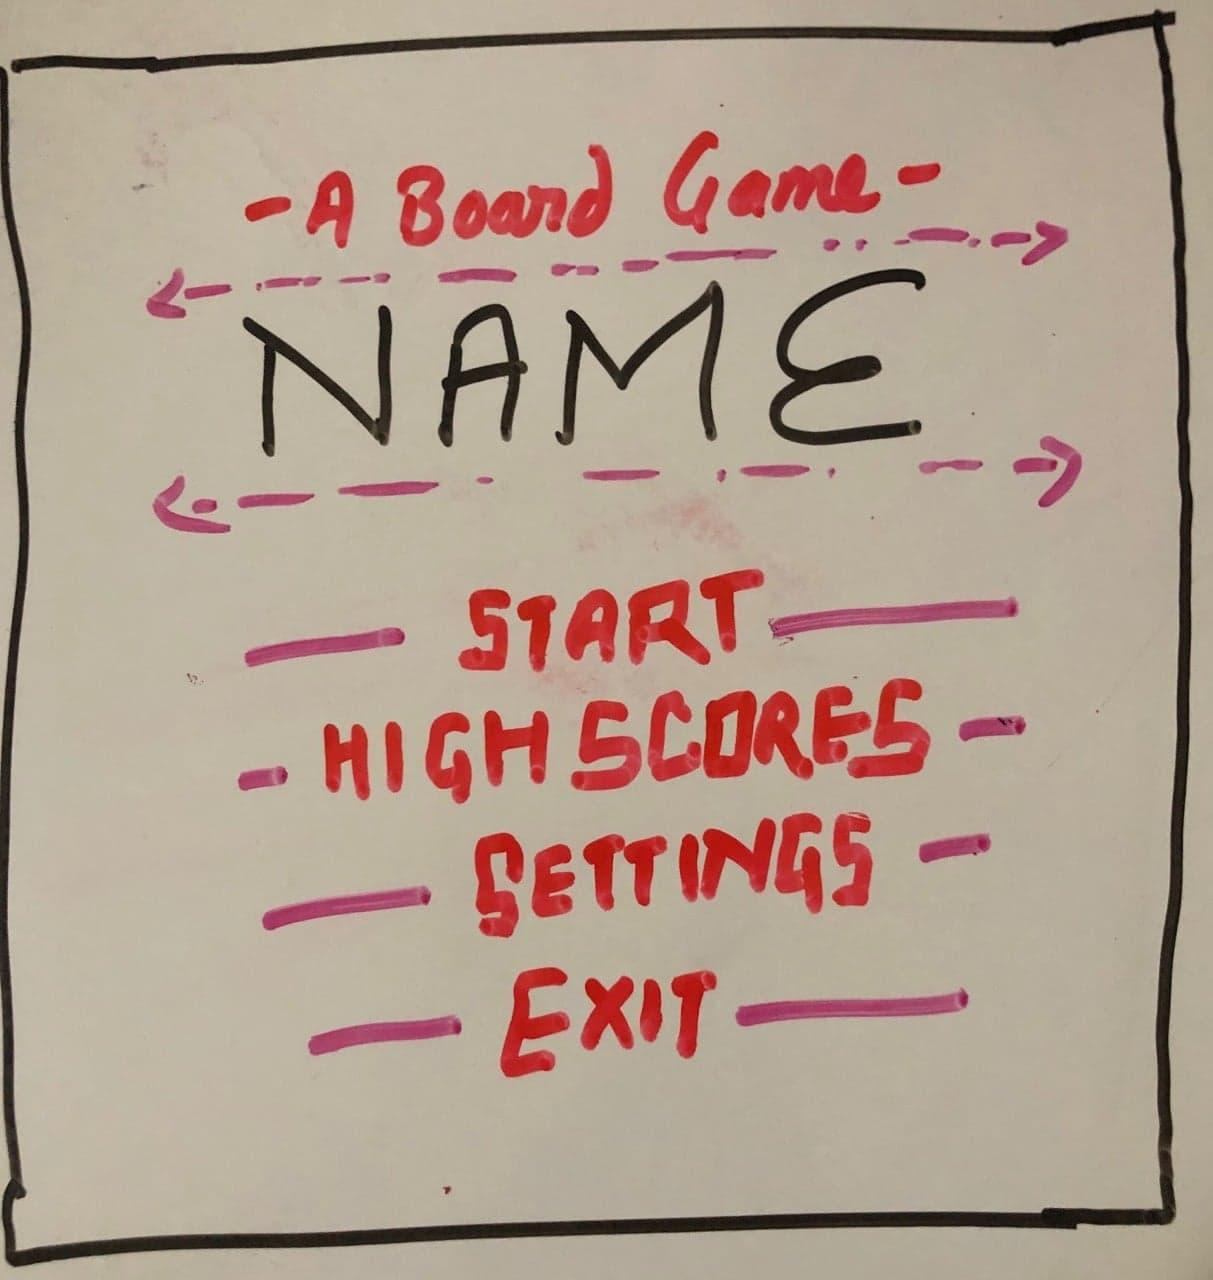 - A Board Game -
NAME
START
HIGH SCORES
SETTINGS
EXIT